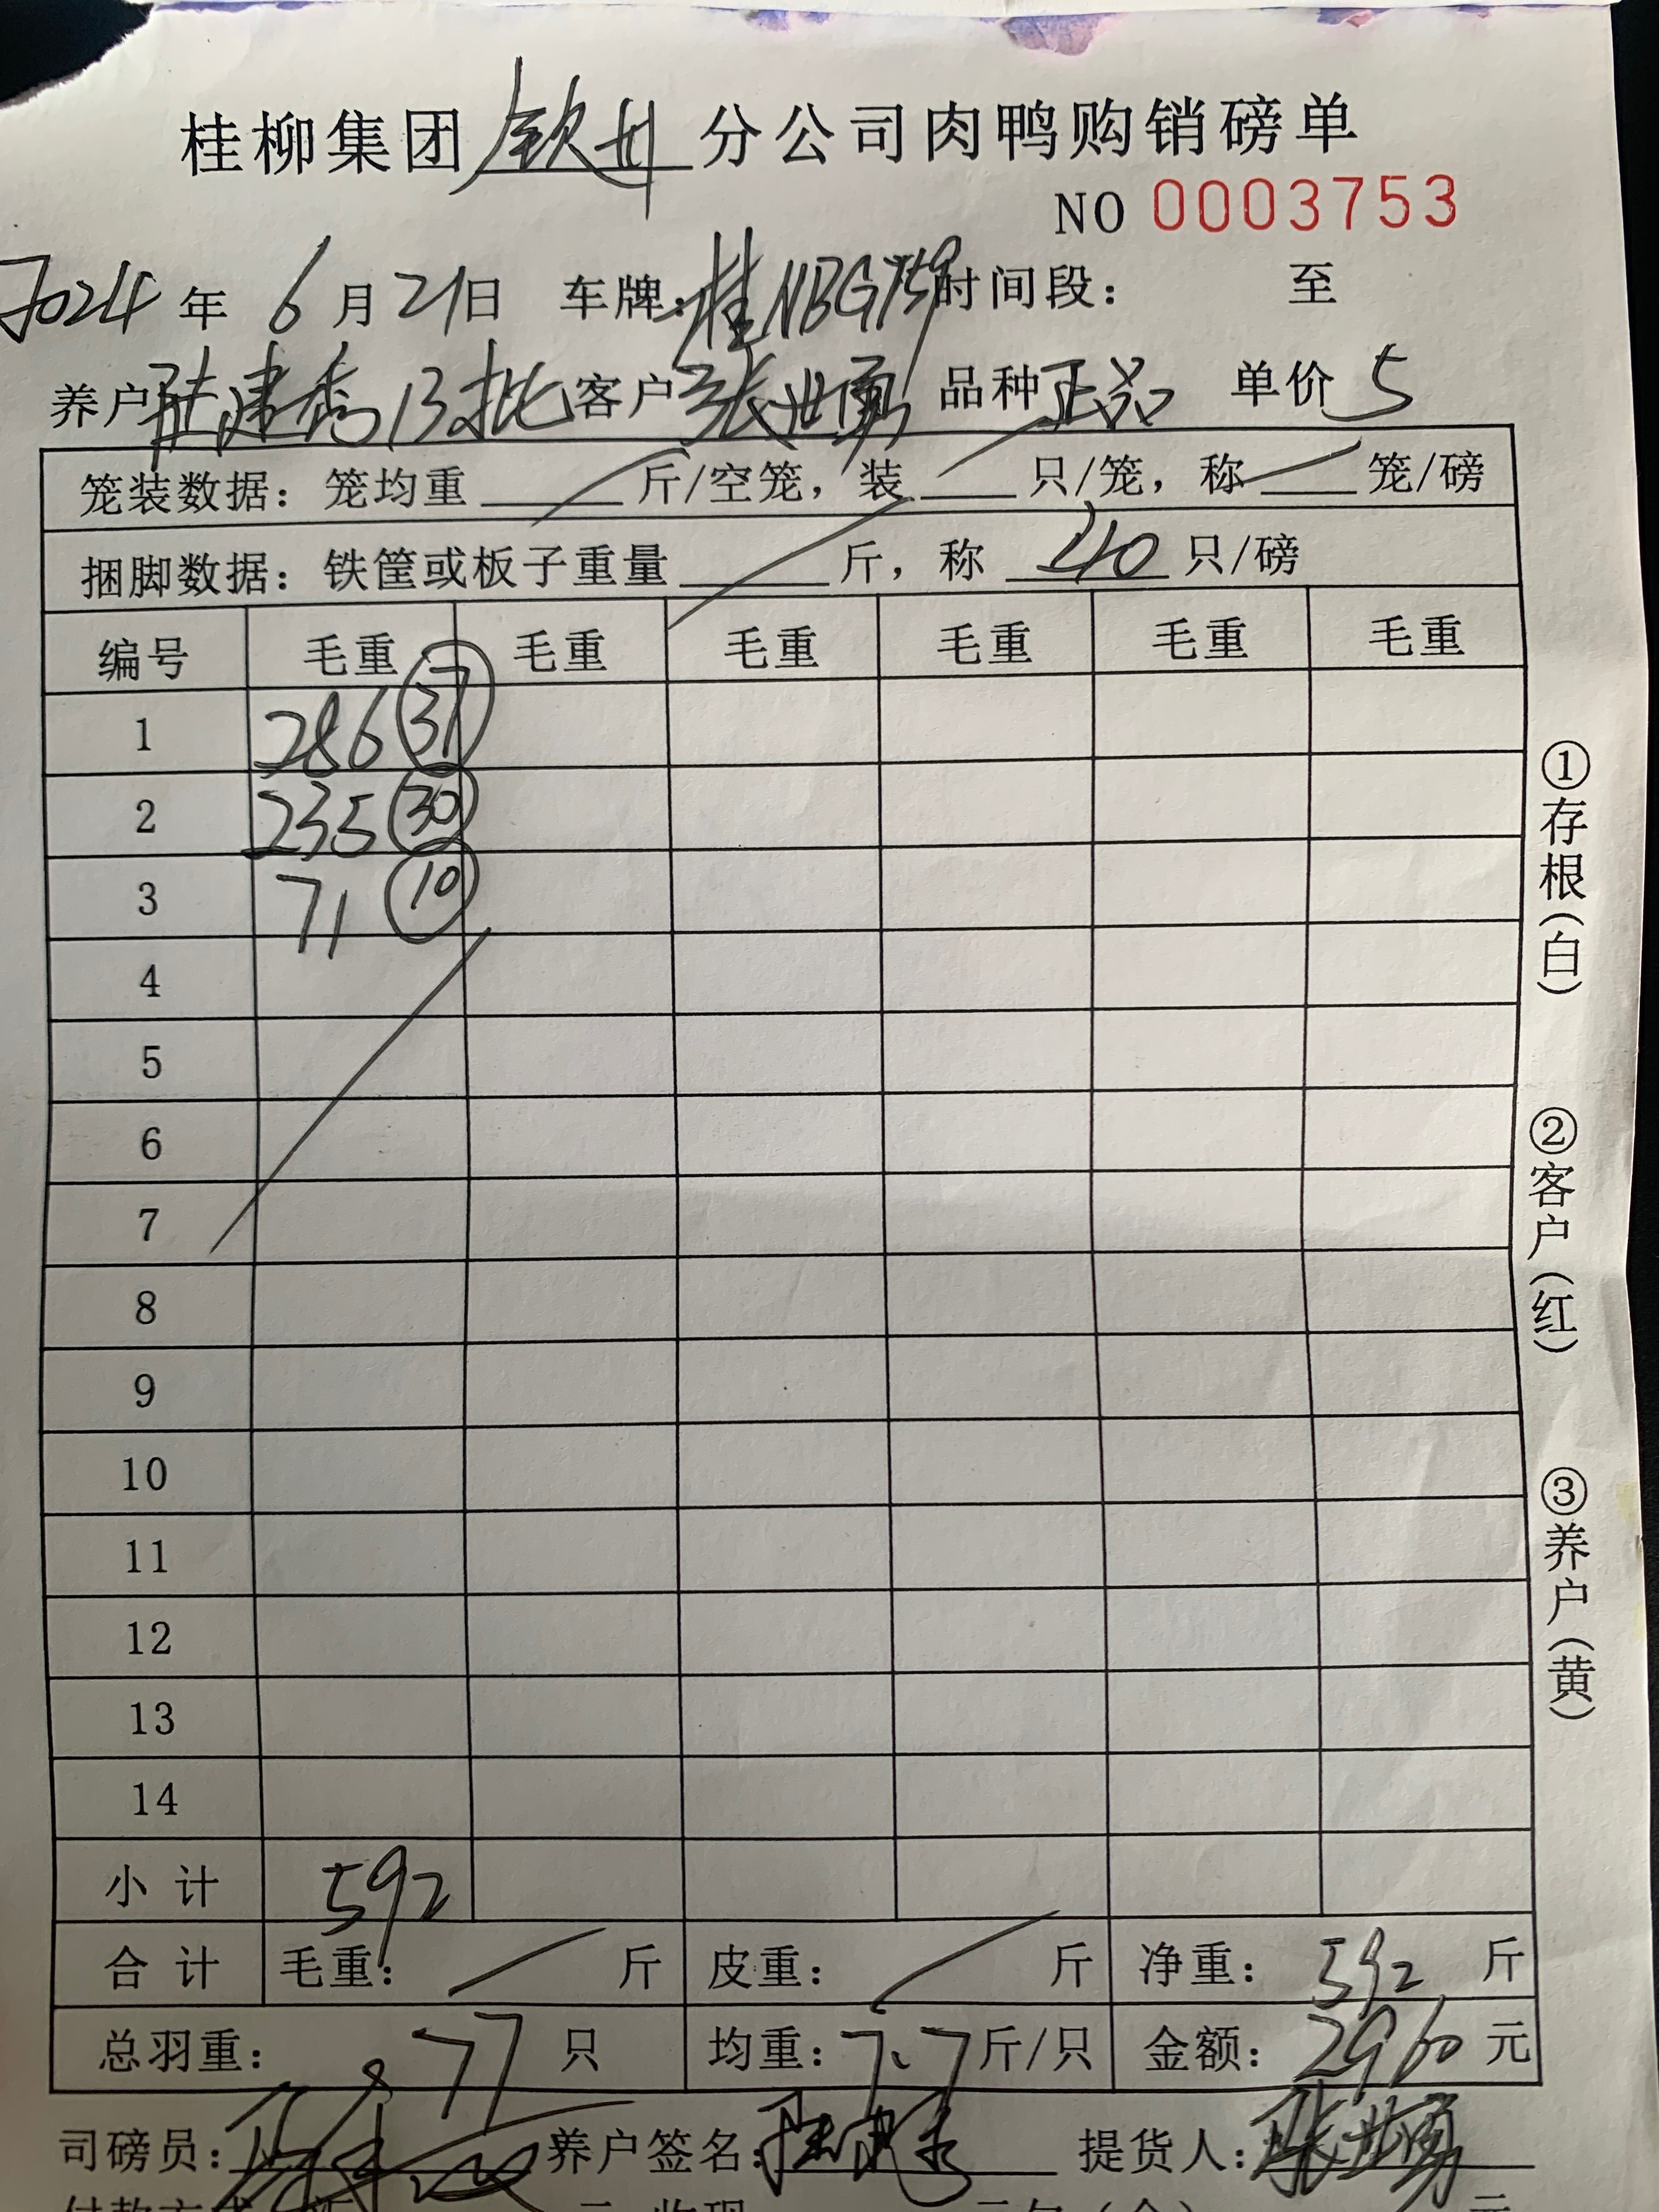 桂柳集团钦州分公司肉鸭购销磅单
NO 0003753
2024年6月21日 车牌:桂NBG759时间段: 至
养户陆建秀13批客户张世勇 品种正品 单价5
笼装数据: 笼均重 斤/空笼, 装 只/笼, 称 笼/磅
捆脚数据: 铁筐或板子重量 斤, 称 40 只/磅
编号 毛重 毛重 毛重 毛重 毛重 毛重
1 286 37
2 235 30
3 71 10
4
5
6
7
8
9
10
11
12
13
14
小计 592
合计 毛重: 斤 皮重: 斤 净重: 592 斤
总羽重: 77 只 均重: 7.7斤/只 金额: 2960元
司磅员: 养户签名: 提货人:张世勇
①存根(白) ②客户(红) ③养户(黄)